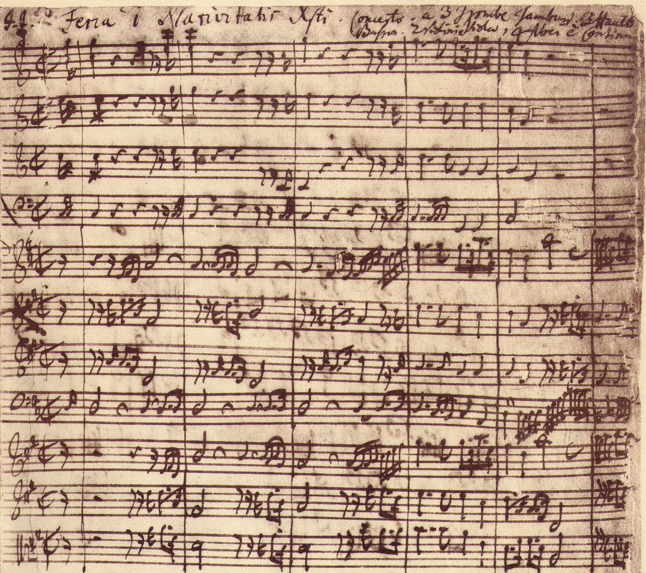 J.J. Feria 1 Nativitatis Xsti. Concerto. a 3 Trombe Tamburi. Hautb
2 Violini Viola, 4 Voci e Continuo